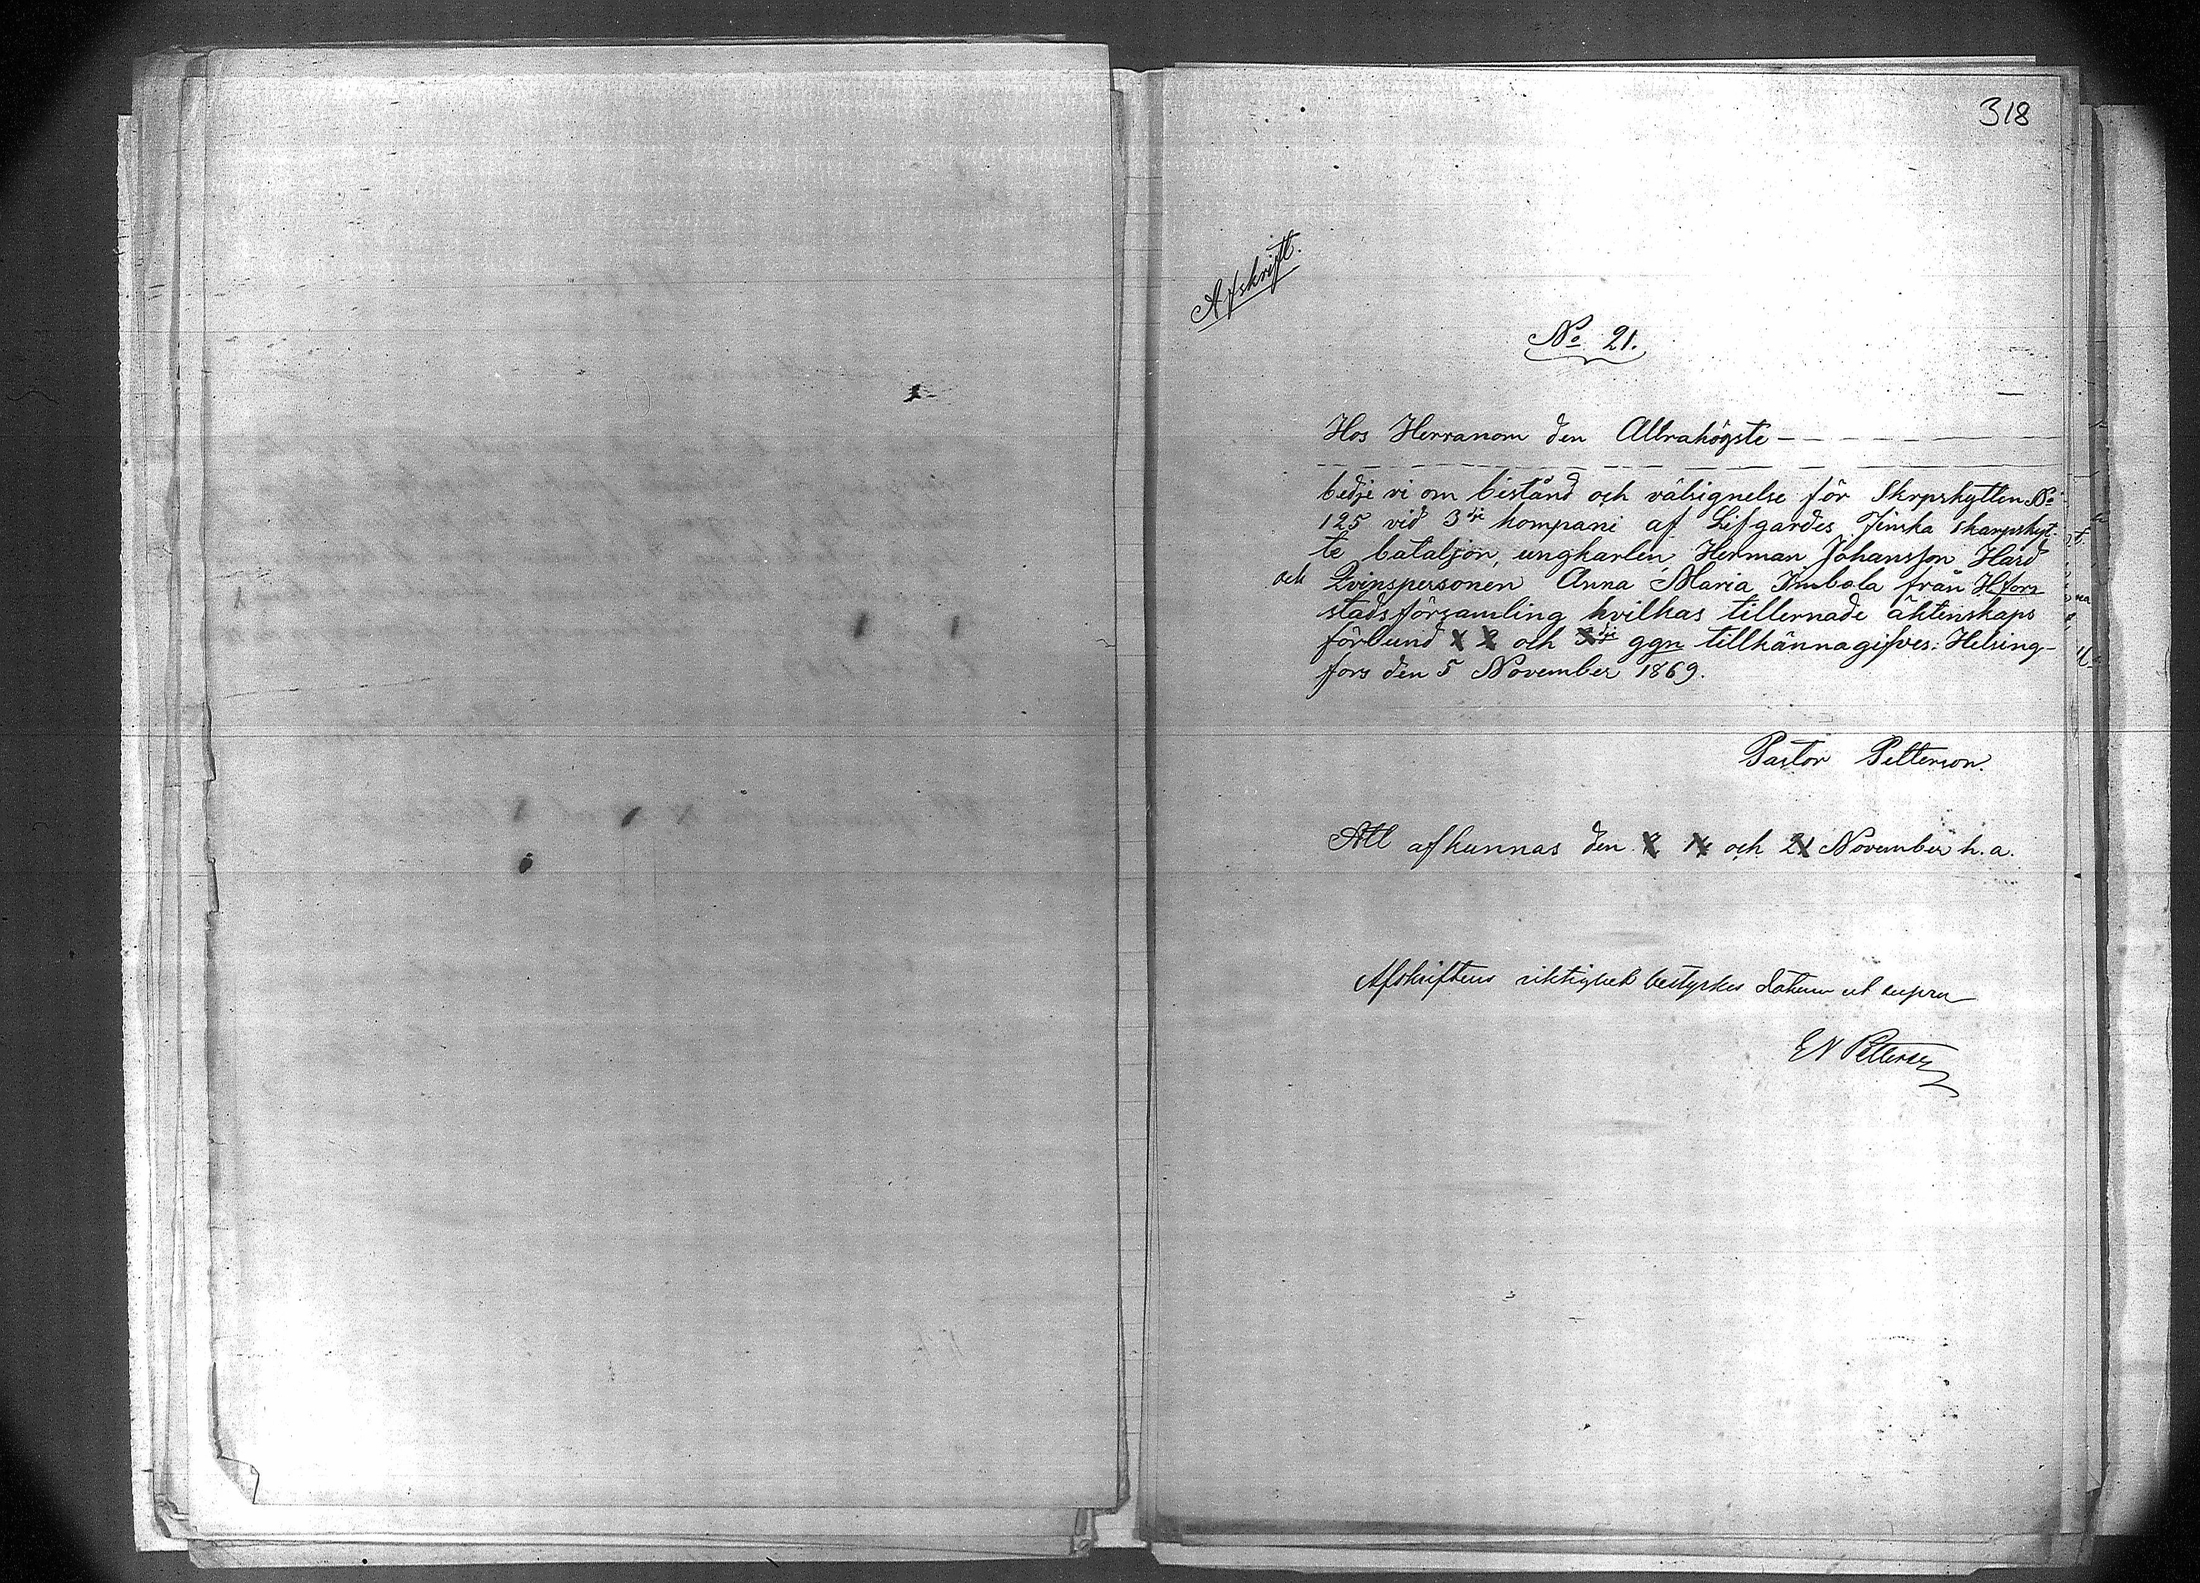 318
Afskrift.
No 21.
Hos Herranom den Allrahögste
bedje vi om bistånd och välsignelse för Skrpskytten No
125 vid 3dje kompani af Lifgardes Finska skarpskyt-
te bataljon, ungkarlen, Herman Johansson Hård
och Qvinspersonen Anna Maria Imbola från Hfors
stadsförsamling hvilkas tillernade äktenskaps
förbund 1 2 och 3dje ggn tillkännagifves. Helsing-
fors den 5 November 1869.
Pastor Petterson.
Att afkunnas den och 21 November h. a.
Afskriftens riktighet bestyrkes datum ut supra
E N Petterson